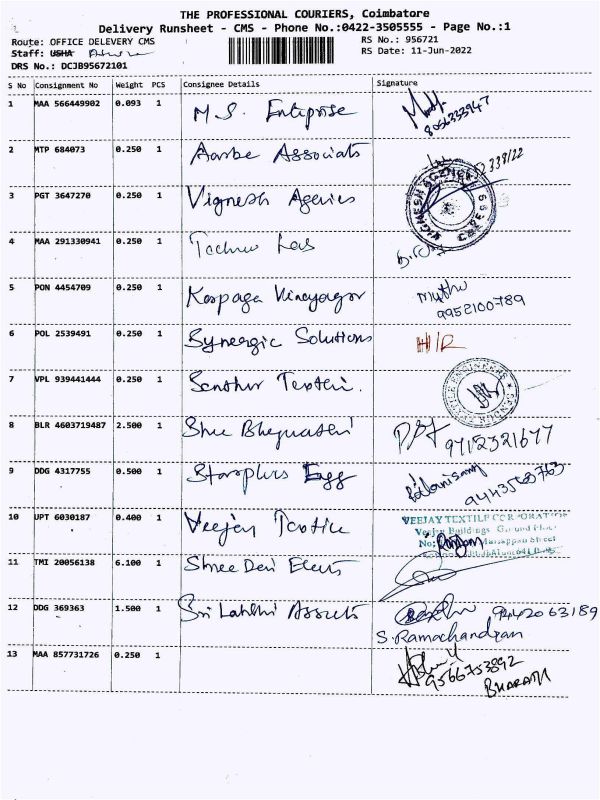 THE PROFESSIONAL COURIERS, Coimbatore
Delivery Runsheet - CMS - Phone No.:0422-3505555 - Page No.:1
Route: OFFICE DELEVERY CMS
RS No.: 956721
Staff: USHA
RS Date: 11-Jun-2022
DRS No.: DCJB95672101
S No Consignment No Weight PCS Consignee Details Signature
1 MAA 566449902 0.093 1 M.S. Enterprise 8056333947
2 MTP 684073 0.250 1 Associats
3 PGT 3647270 0.250 1 Vignesh Agenies
4 MAA 291330941 0.250 1 Techno
5 PON 4454709 0.250 1 Karpaga Vinayagar Muthu
9952100789
6 POL 2539491 0.250 1 Synergic Solutions H/R
7 VPL 939441444 0.250 1
8 BLR 4603719487 2.500 1 Shree 9712321677
9 DDG 4317755 0.500 1 Starplus Egg 9443568763
10 UPT 6030187 0.400 1 Veejay VEEJAY TEXTILE CORPORATION
Veejay Buildings Ground Floor
No:
11 TMI 20056138 6.100 1 Shree Devi
12 DDG 369363 1.500 1 Sri 9442063189
S. Ramachandran
13 MAA 857731726 0.250 1 9566753892
BHARATH